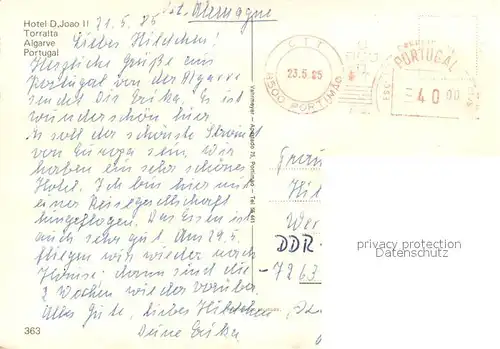 Hotel D. Joao II
Torralta
Algarve
Portugal
21.5.85
Allemagne
Liebes Hildchen!
Herzliche Grüße aus
Portugal von der Algarve
sendet Dir Erika. Es ist
wunderschön hier.
Es soll der schönste Strand
von Europa sein. Wir
haben ein sehr schönes
Hotel. Ich bin hier mit
einer Reisegesellschaft
hingeflogen. Das Essen ist
auch sehr gut. Am 29.5.
fliegen wir wieder nach
Hause; dann sind die
2 Wochen wieder vorüber.
Alles Gute, liebes Hildchen,
Deine Erika
363
CTT
23.5.85
8500 PORTIMÃO
PORTUGAL
40 00
Frau
Hil
Wer
DDR-
-7263
privacy protection
Datenschutz